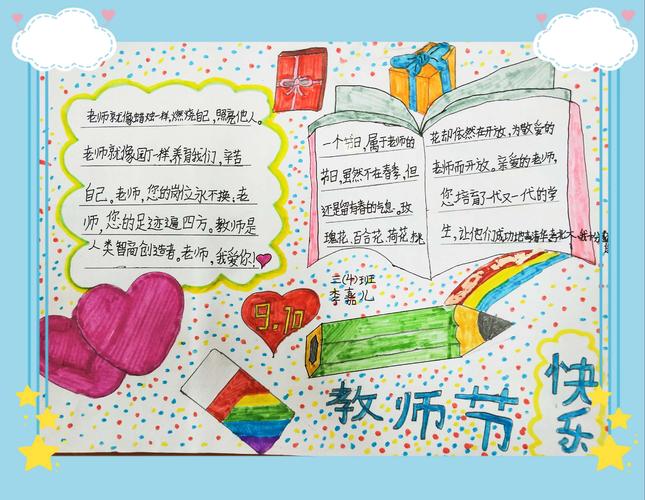 老师就像蜡烛一样,燃烧自己,照亮他人。
老师就像园丁一样养育我们,辛苦
自己。老师,您的岗位永不换,老
师,您的足迹遍四方。教师是
人类智高创造者。老师,我爱你!
一个节日,属于老师的
节日,虽然不在春春,但
还是留有春的气息。玫
瑰花、百合花、荷花、桃
花却依然在开放,为敬爱的
老师而开放。亲爱的老师,
您培育了代又一代的学
生,让他们成功地
三(4)班
李嘉儿
9.10
教师节
快乐